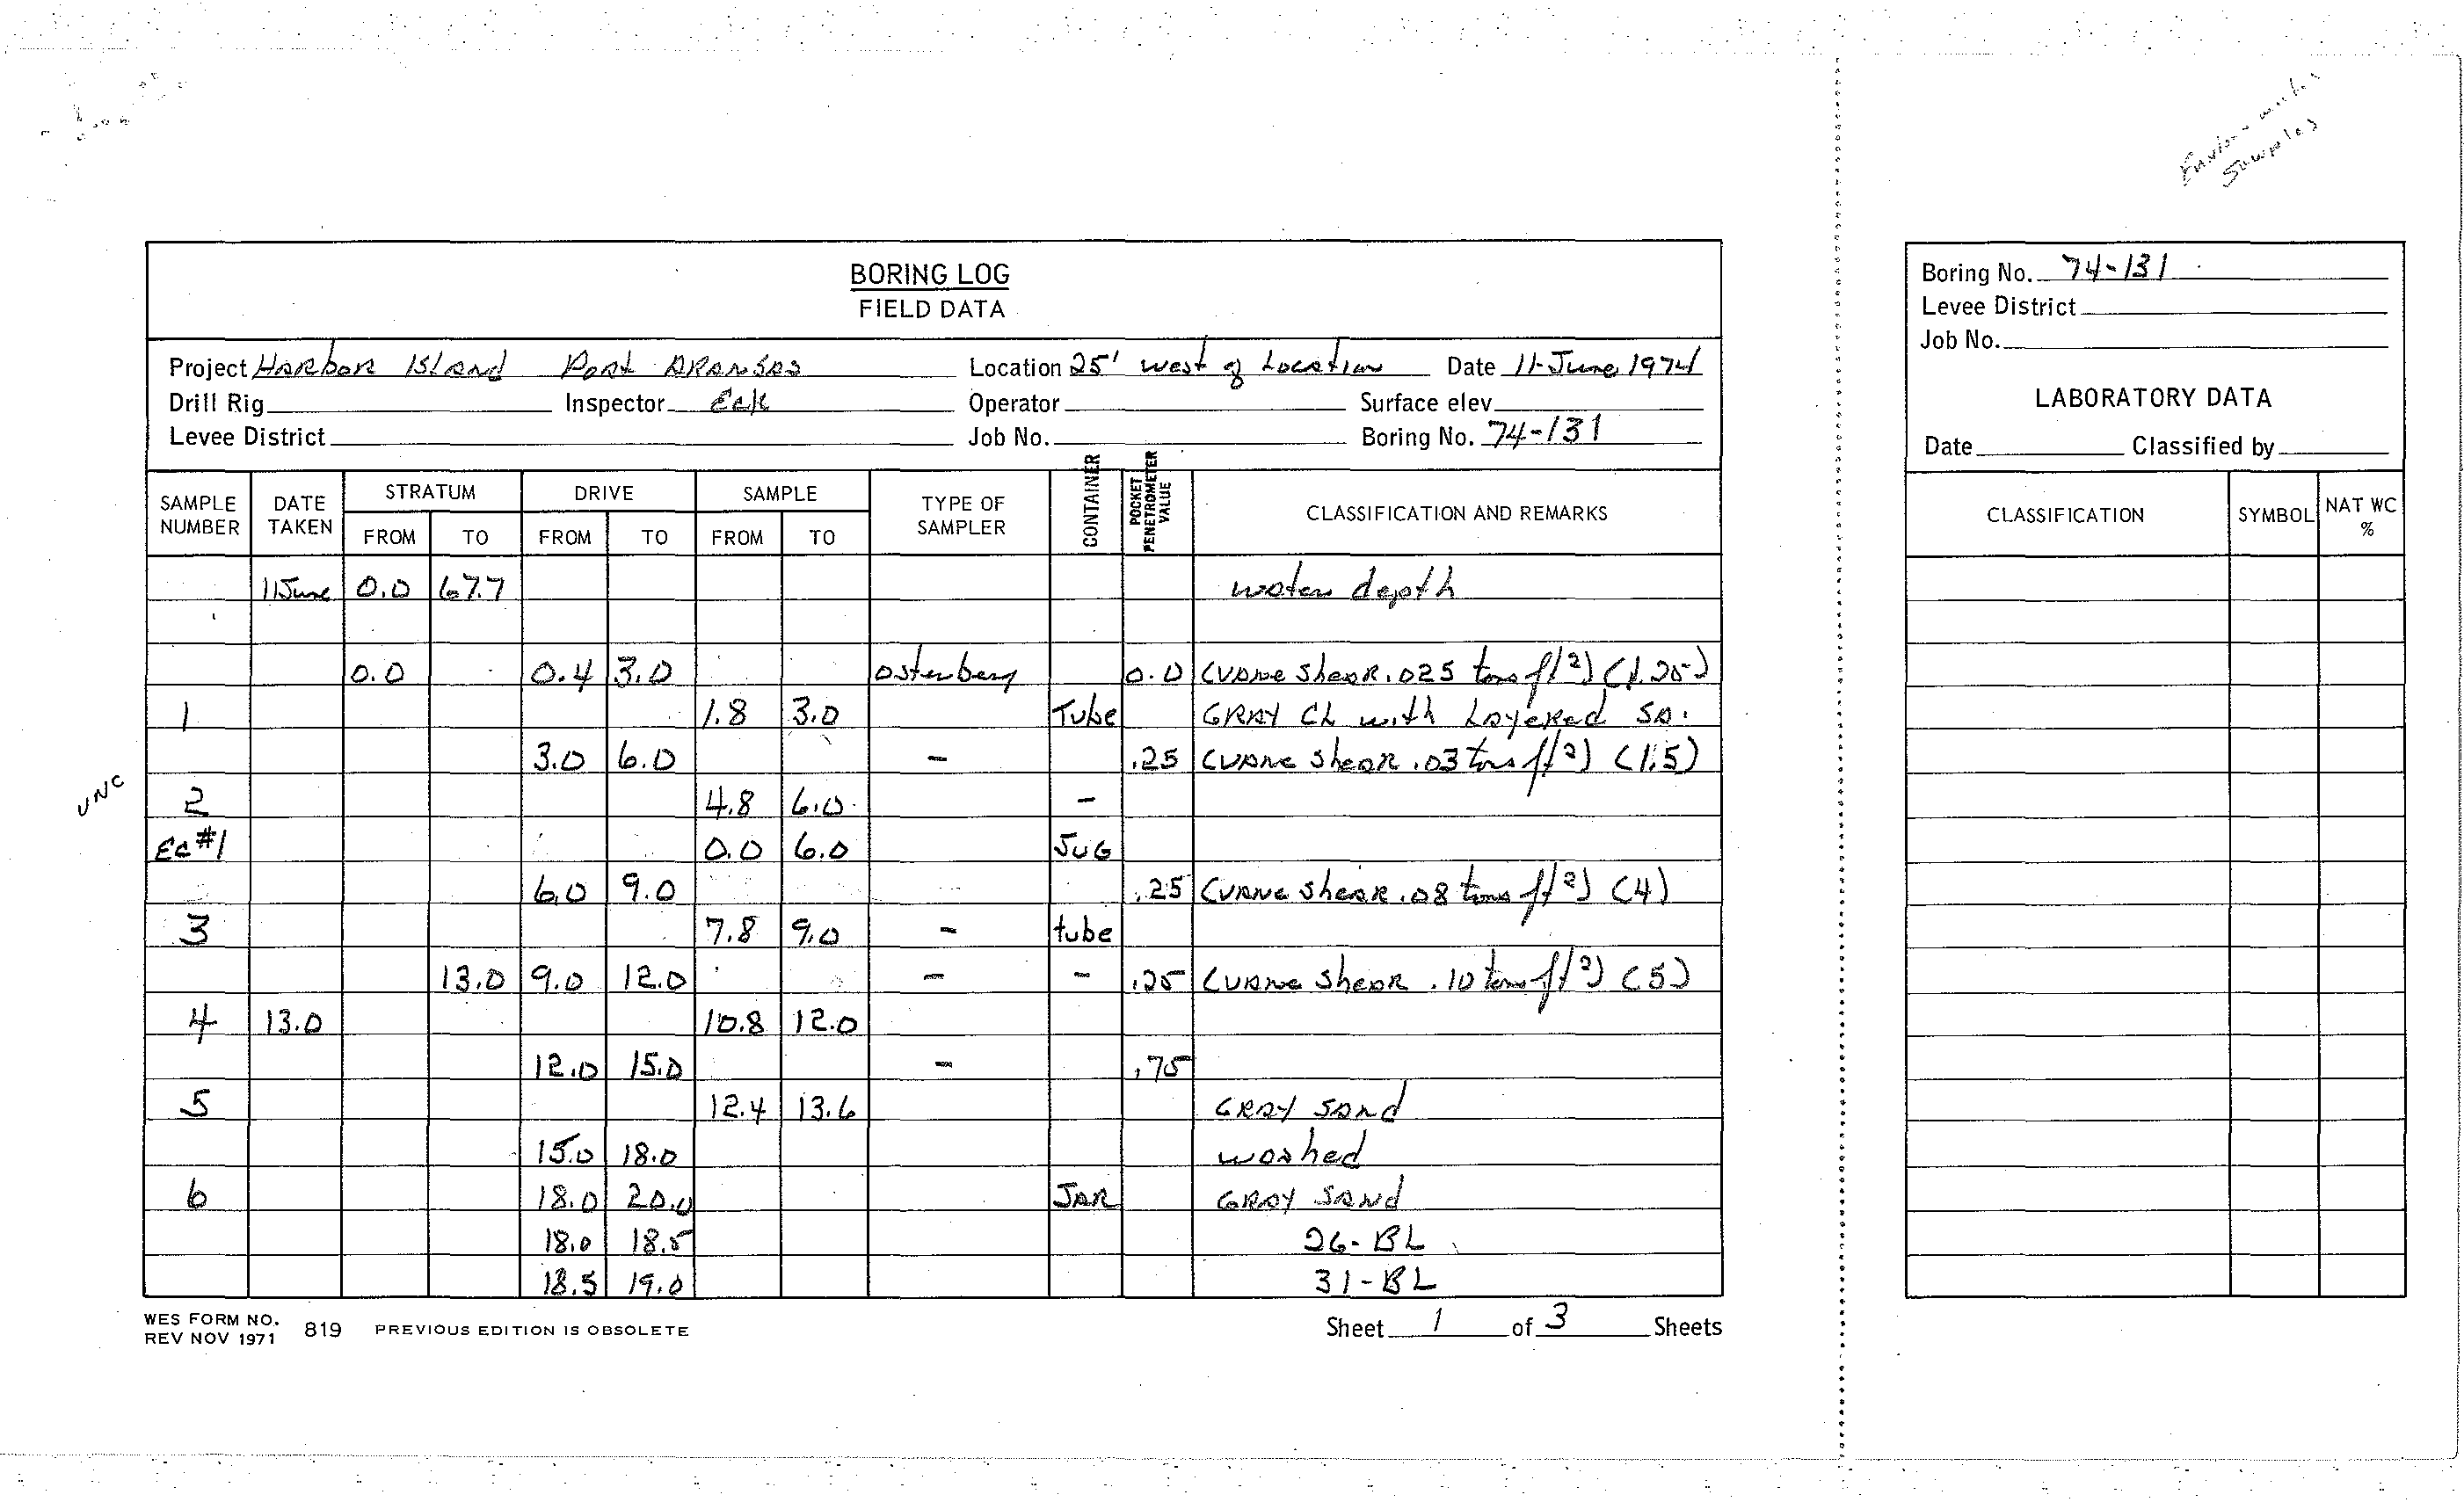 samples
BORING LOG
FIELD DATA
Project Harbor Island Port Aransas Location 25' west of Location Date 11-June 1974
Drill Rig Inspector Operator Surface elev.
Levee District Job No. Boring No. 74-131
SAMPLE NUMBER DATE TAKEN STRATUM FROM TO DRIVE FROM TO SAMPLE FROM TO TYPE OF SAMPLER CONTAINER POCKET PENETROMETER VALUE CLASSIFICATION AND REMARKS
11June 0.0 67.7 water depth
0.0 0.4 3.0 osterberg 0.0 (vane shear .025 tons ft2) (1.25)
1 1.8 3.0 Tube GRAY CL with Layered SA.
3.0 6.0 - .25 (vane shear .03 tons ft2) (1.5)
UNC
2 4.8 6.0 -
Ec #1 0.0 6.0 JUG
6.0 9.0 .25 (vane shear .08 tons ft2) (4)
3 7.8 9.0 - tube
13.0 9.0 12.0 - - .25 (vane shear .10 tons ft2) (5)
4 13.0 10.8 12.0
12.0 15.0 - .75
5 12.4 13.6 GRAY SAnd
15.0 18.0 washed
6 18.0 20.0 JAR GRAY SANd
18.0 18.5 26-BL
18.5 19.0 31-BL
WES FORM NO. 819 PREVIOUS EDITION IS OBSOLETE
REV NOV 1971
Sheet 1 of 3 Sheets
Boring No. 74-131
Levee District
Job No.
LABORATORY DATA
Date Classified by
CLASSIFICATION SYMBOL NAT WC %